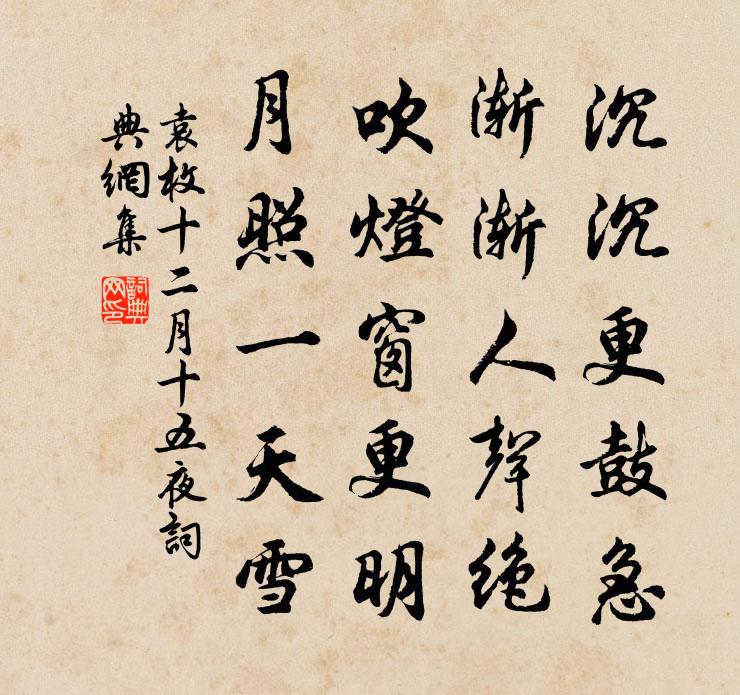 沉沉更鼓急
渐渐人聲绝
吹燈窗更明
月照一天雪
袁枚十二月十五夜詞
典網集
詞典
网印